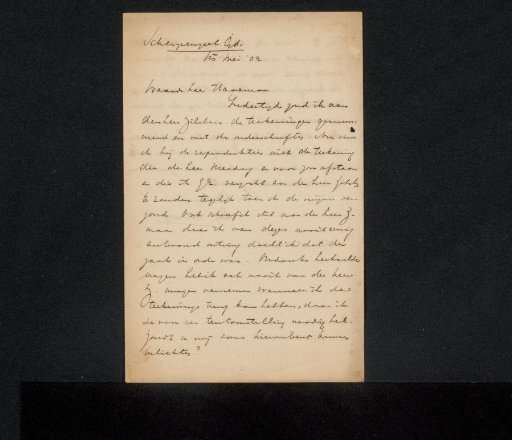 Scherpenzeel Gld.
15 Mei '02
Waarde Heer Haverman
Indertijd zond ik aan
den heer Zilcken de teekeningen genum-
merd en met de onderschriften. Nu vind
ik bij de reproducties niet de teekening
die de heer
en die ik verzocht aan den heer Zilcken
te zenden tegelijk toen ik de mijne ver-
zond. Ook schreef ik dit aan de heer Z.
maar daar ik van dezen nooit eenig
antwoord ontving dacht ik dat die
zaak in orde was. Ondanks herhaalde
vragen heb ik ook nooit van den heer
Z. mogen vernemen wanneer ik de
teekenings terug kan hebben, daar ik
ze voor een tentoonstelling noodig heb.
Zoudt u mij eens hieromtrent kunnen
inlichten?